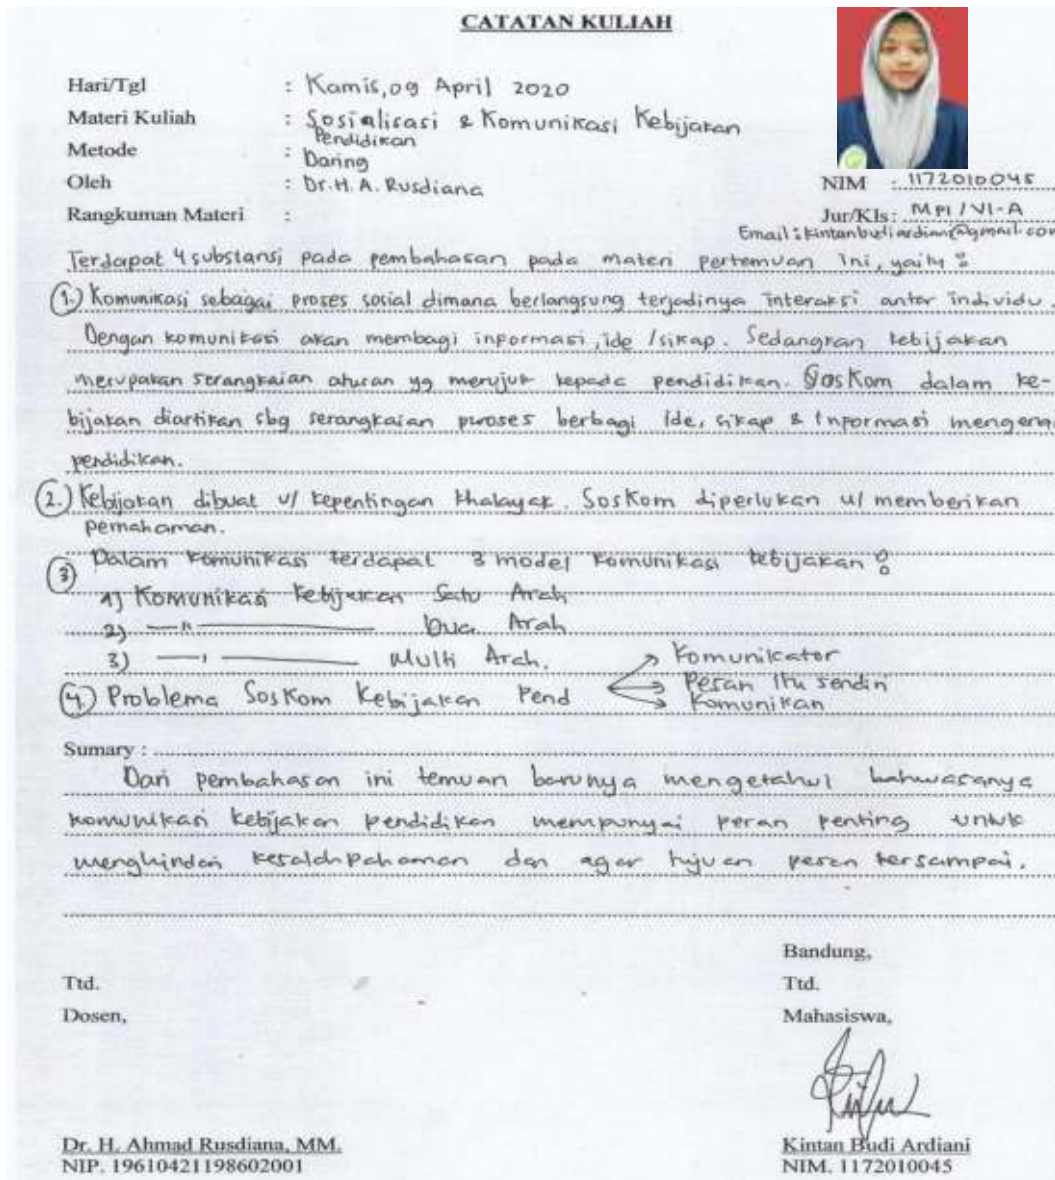 CATATAN KULIAH
Hari/Tgl : Kamis, 09 April 2020
Materi Kuliah : Sosialisasi & Komunikasi Kebijakan
Pendidikan
Metode : Daring
Oleh : Dr. H. A. Rusdiana
NIM : 1172010045
Rangkuman Materi :
Jur/Kls : MPI / VI-A
Email : kintanbudiardiani@gmail.com
Terdapat 4 substansi pada pembahasan pada materi pertemuan ini, yaitu :
1.) Komunikasi sebagai proses sosial dimana berlangsung terjadinya interaksi antar individu.
Dengan komunikasi akan membagi informasi, ide /sikap. Sedangkan kebijakan
merupakan serangkaian aturan yg merujuk kepada pendidikan. SosKom dalam ke-
bijakan diartikan sbg serangkaian proses berbagi ide, sikap & informasi mengenai
pendidikan.
2.) Kebijakan dibuat u/ kepentingan khalayak. SosKom diperlukan u/ memberikan
pemahaman.
3 Dalam komunikasi terdapat 3 model komunikasi kebijakan :
1) Komunikasi Kebijakan Satu Arah
2) —"— Dua Arah
3) —"— Multi Arah.
4.) Problema SosKom Kebijakan Pend
Komunikator
Pesan itu sendiri
Komunikan
Sumary :
Dari pembahasan ini temuan barunya mengetahui bahwasanya
komunikasi kebijakan pendidikan mempunyai peran penting untuk
menghindari kesalahpahaman dan agar tujuan pesan tersampai.
Bandung,
Ttd. Ttd.
Dosen, Mahasiswa,
Dr. H. Ahmad Rusdiana, MM. Kintan Budi Ardiani
NIP. 19610421198602001 NIM. 1172010045